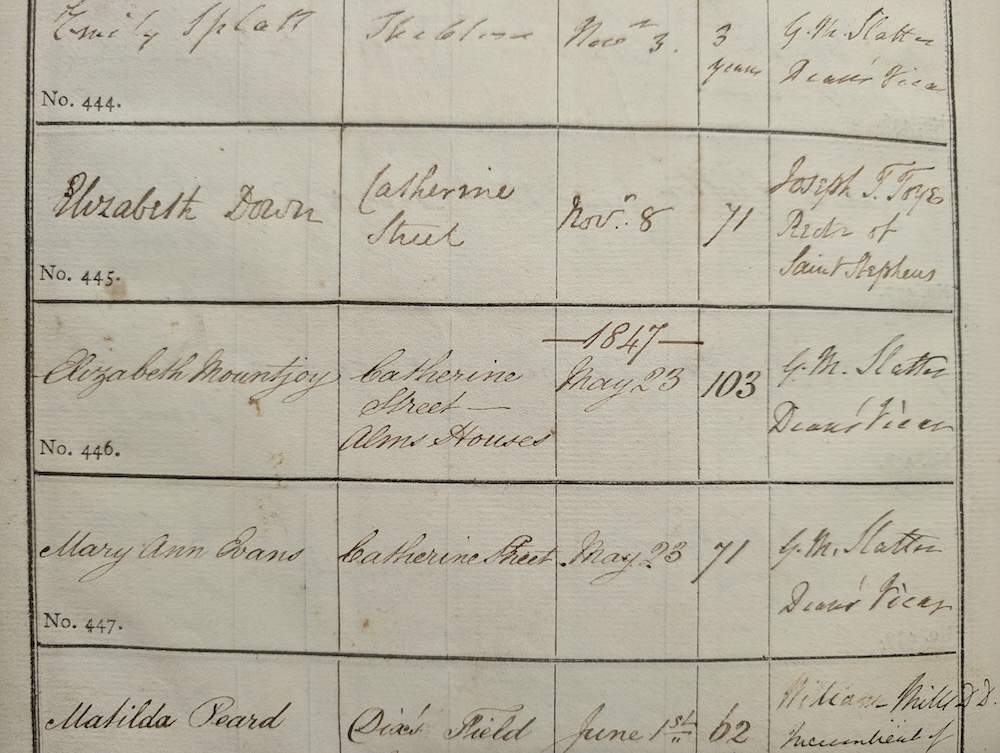 Emily Splatt The Close Novr 3. 3 years G. M. Slatter
Dean's Vicar
No. 444.
Elizabeth Down Catherine Street Novr. 8 71 Joseph T. Toye
Rector of
Saint Stephens
No. 445.
—1847—
Elizabeth Mountjoy Catherine May 23 103 G. M. Slatter
Street — Dean's Vicar
Alms Houses
No. 446.
Mary Ann Evans Catherine Street May 23 71 G. M. Slatter
Dean's Vicar
No. 447.
Matilda Peard Dix's Field June 1st 62 William Mills D.D.
Incumbent of